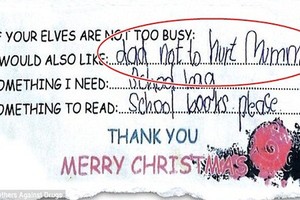 F YOUR ELVES ARE NOT TOO BUSY:
WOULD ALSO LIKE: dad not to hurt Mumm
OMETHING I NEED: School
OMETHING TO READ: School books please
THANK YOU
MERRY CHRISTMAS